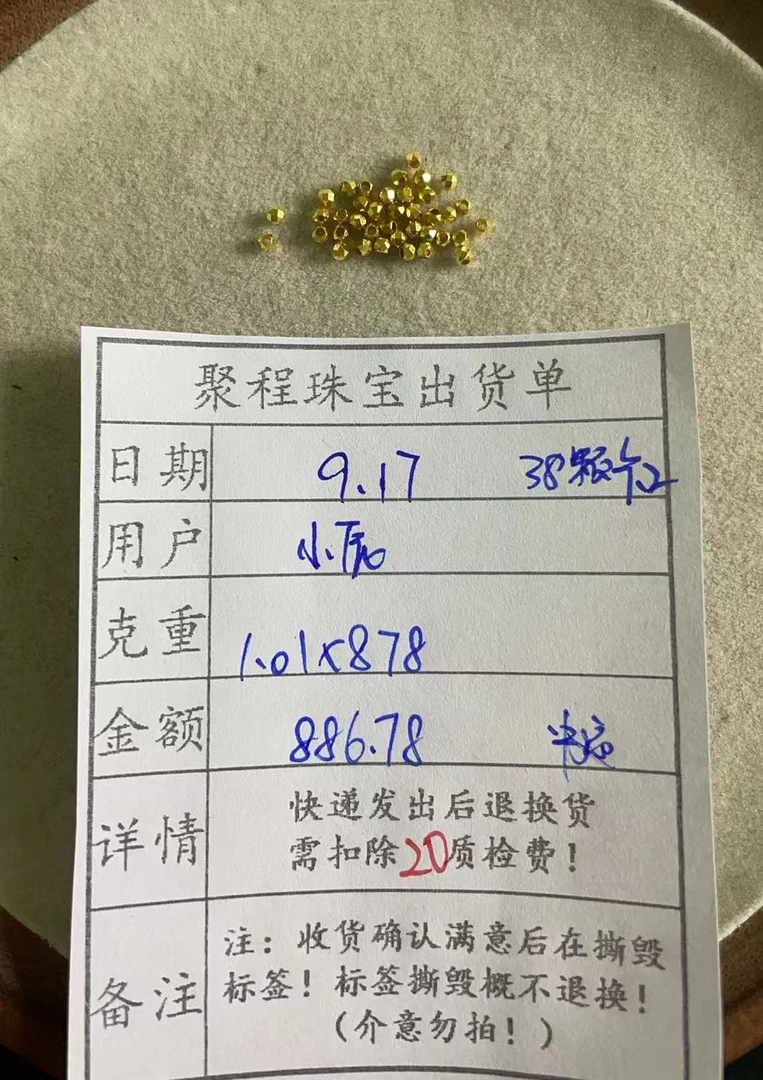 聚程珠宝出货单
日期 9.17 38颗
用户 小
克重 1.01x878
金额 886.78
详情 快递发出后退换货
需扣除20质检费！
备注 注：收货确认满意后在撕毁
标签！标签撕毁概不退换！
（介意勿拍！）